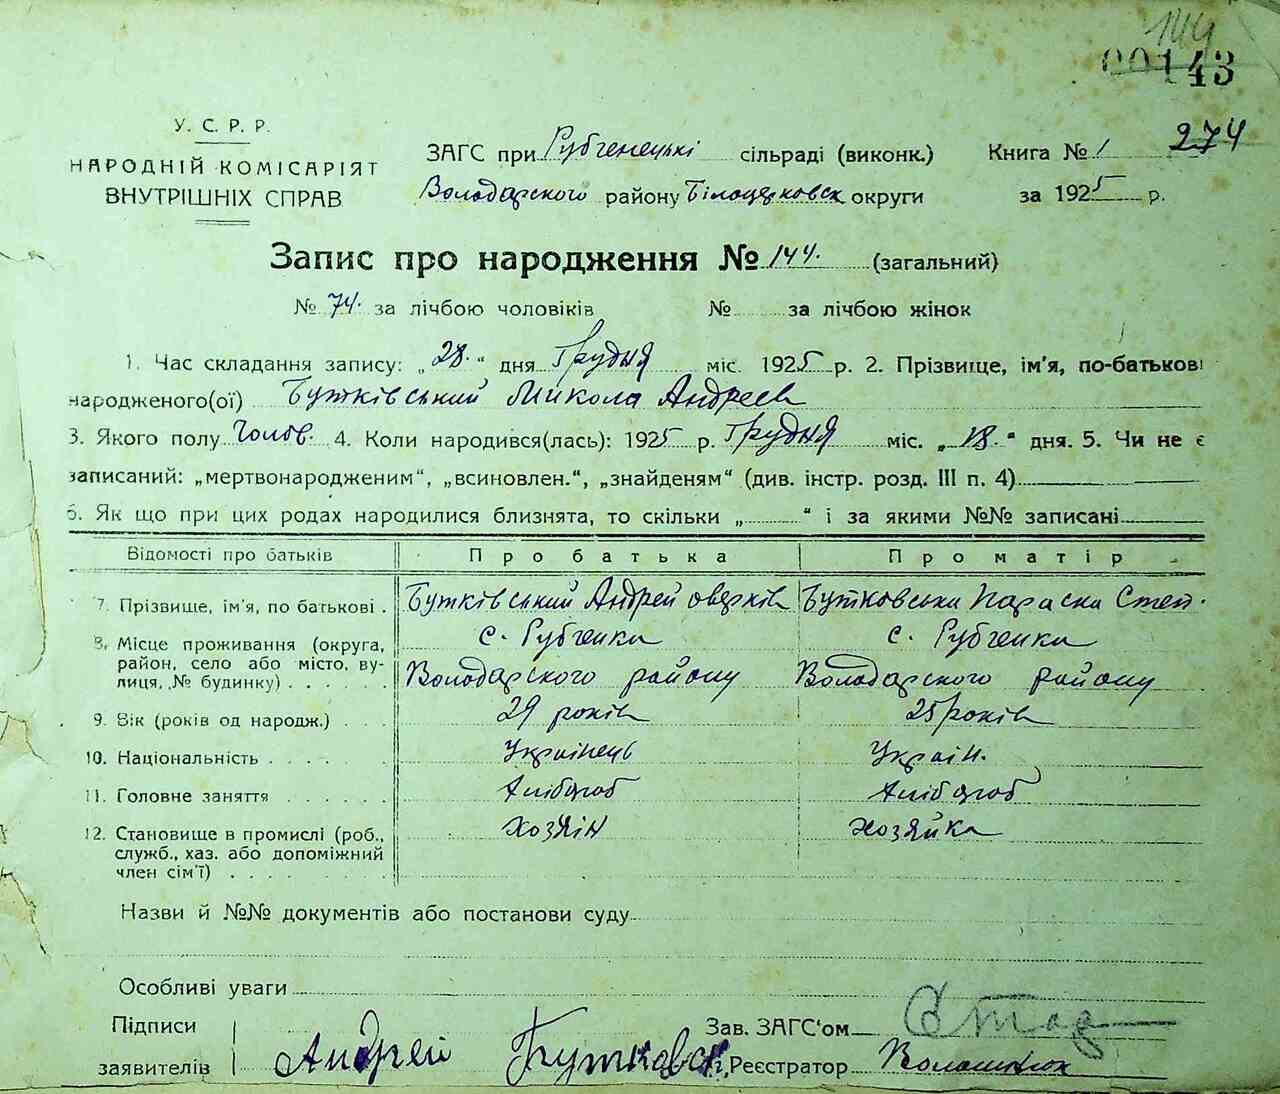 144
00143
У. С. Р. Р.
НАРОДНІЙ КОМІСАРІЯТ
ВНУТРІШНІХ СПРАВ
ЗАГС при Рубченецькі сільраді (виконк.) Книга № 1 274
Володарского району Білоцерковск округи за 1925 р.
Запис про народження № 144. (загальний)
№ 74. за лічбою чоловіків № за лічбою жінок
1. Час складання запису: „28.“ дня Грудня міс. 1925 р. 2. Прізвище, ім'я, по-батькові
народженого(ої) Бутківський Микола Андреєв
3. Якого полу Чолов. 4. Коли народився(лась): 1925 р. Грудня міс. „18.“ дня. 5. Чи не є
записаний: „мертвонародженим“, „всиновлен.“, „знайденям“ (див. інстр. розд. III п. 4)
6. Як що при цих родах народилися близнята, то скільки „ “ і за якими №№ записані
Відомості про батьків Про батька Про матір
7. Прізвище, ім'я, по батькові . Бутківський Андрей Оверків Бутковська Параска Степ.
8. Місце проживання (округа, с. Рубченка с. Рубченка
район, село або місто, ву-
лиця, № будинку) . . . . . Володарского району Володарского району
9. Вік (років од народж.) . . . 29 років 25 років
10. Національність . . . . . Українець Україн.
11. Головне заняття . . . . . . Хлібороб Хлібороб
12. Становище в промислі (роб., хозяїн хозяйка
служб., хаз. або допоміжний
член сім'ї) . . . . . . . .
Назви й №№ документів або постанови суду
Особливі уваги
Підписи Зав. ЗАГС'ом
заявителів Андрей Бутковск, Реєстратор